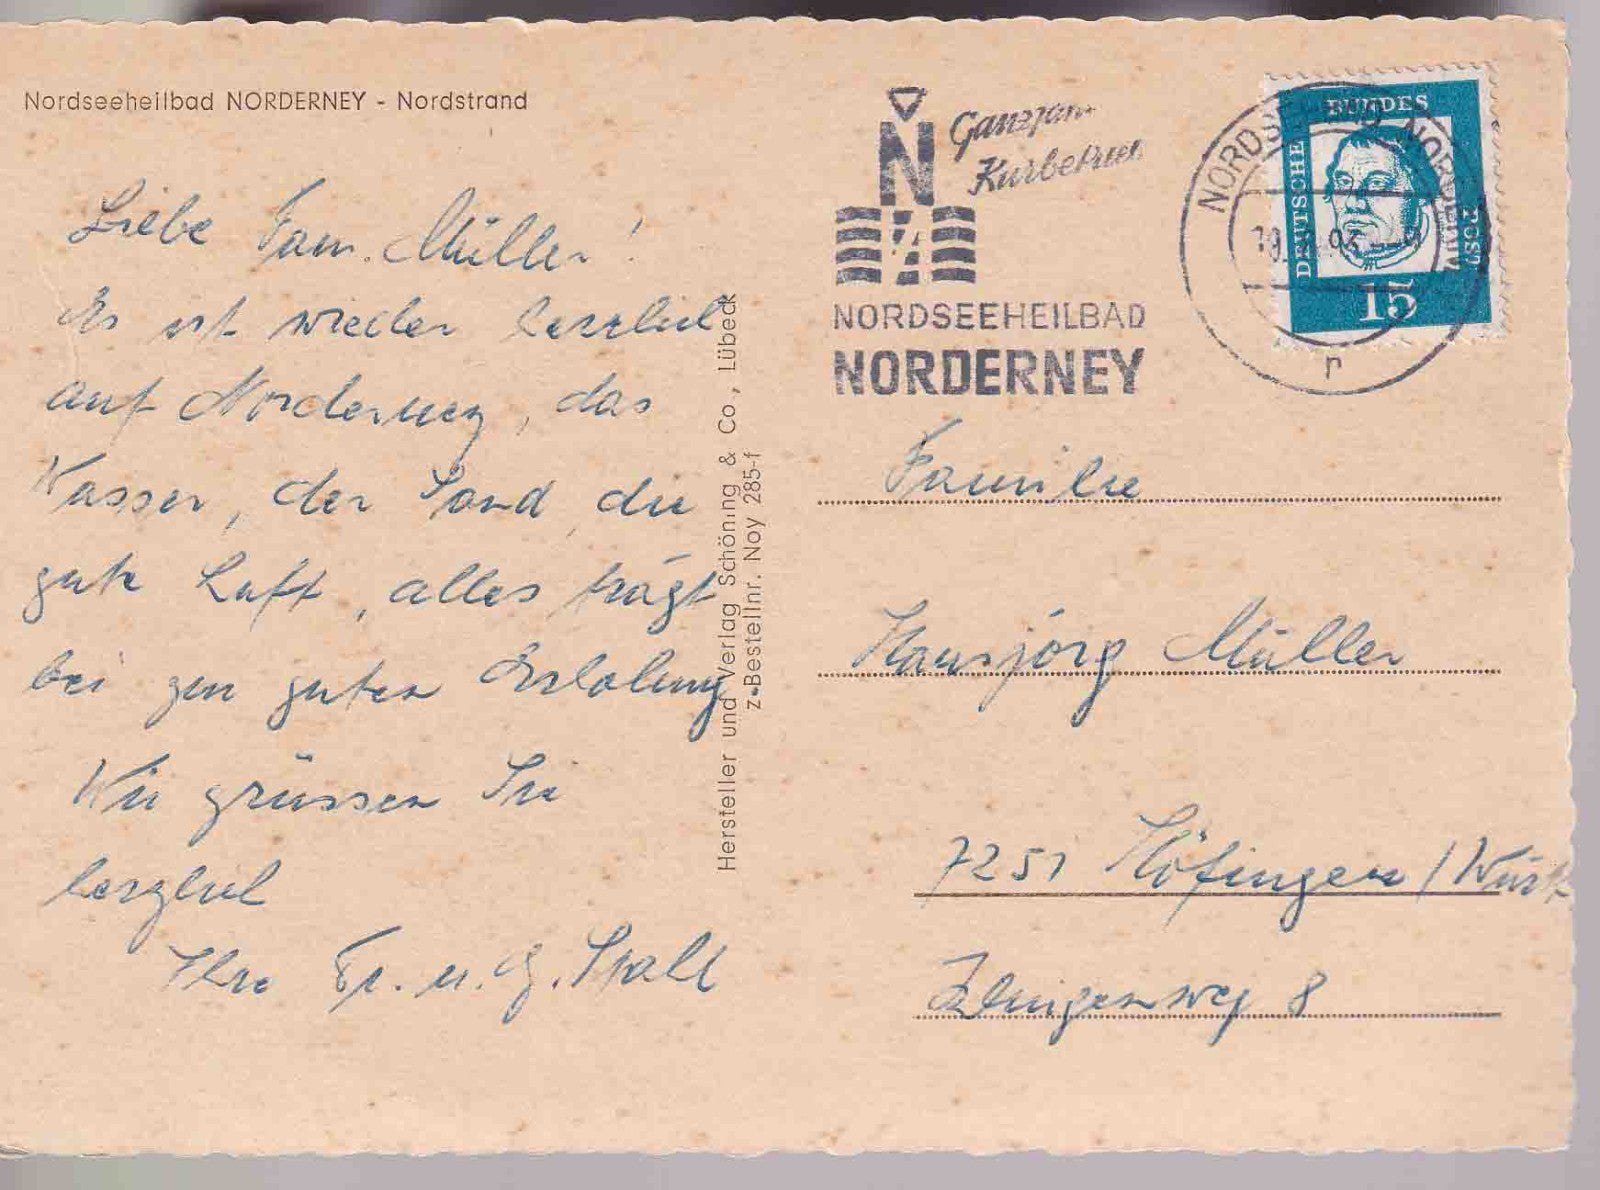 Nordseeheilbad NORDERNEY - Nordstrand
Liebe Fam. Müller!
Es ist wieder herzlich
auf Norderney, das
Wasser, der Sand, die
gute Luft, alles trägt
bei zur guten Erholung
Wir grüssen Sie
herzlich
Ihre Fr. u. G.
Hersteller und Verlag Schöning & Co., Lübeck
z-Bestellnr. Noy 285-f
N
NORDSEEHEILBAD
NORDERNEY
DEUTSCHE BUNDESPOST
15
Familie
Hansjörg Müller
7251 Höfingen / Württ
8